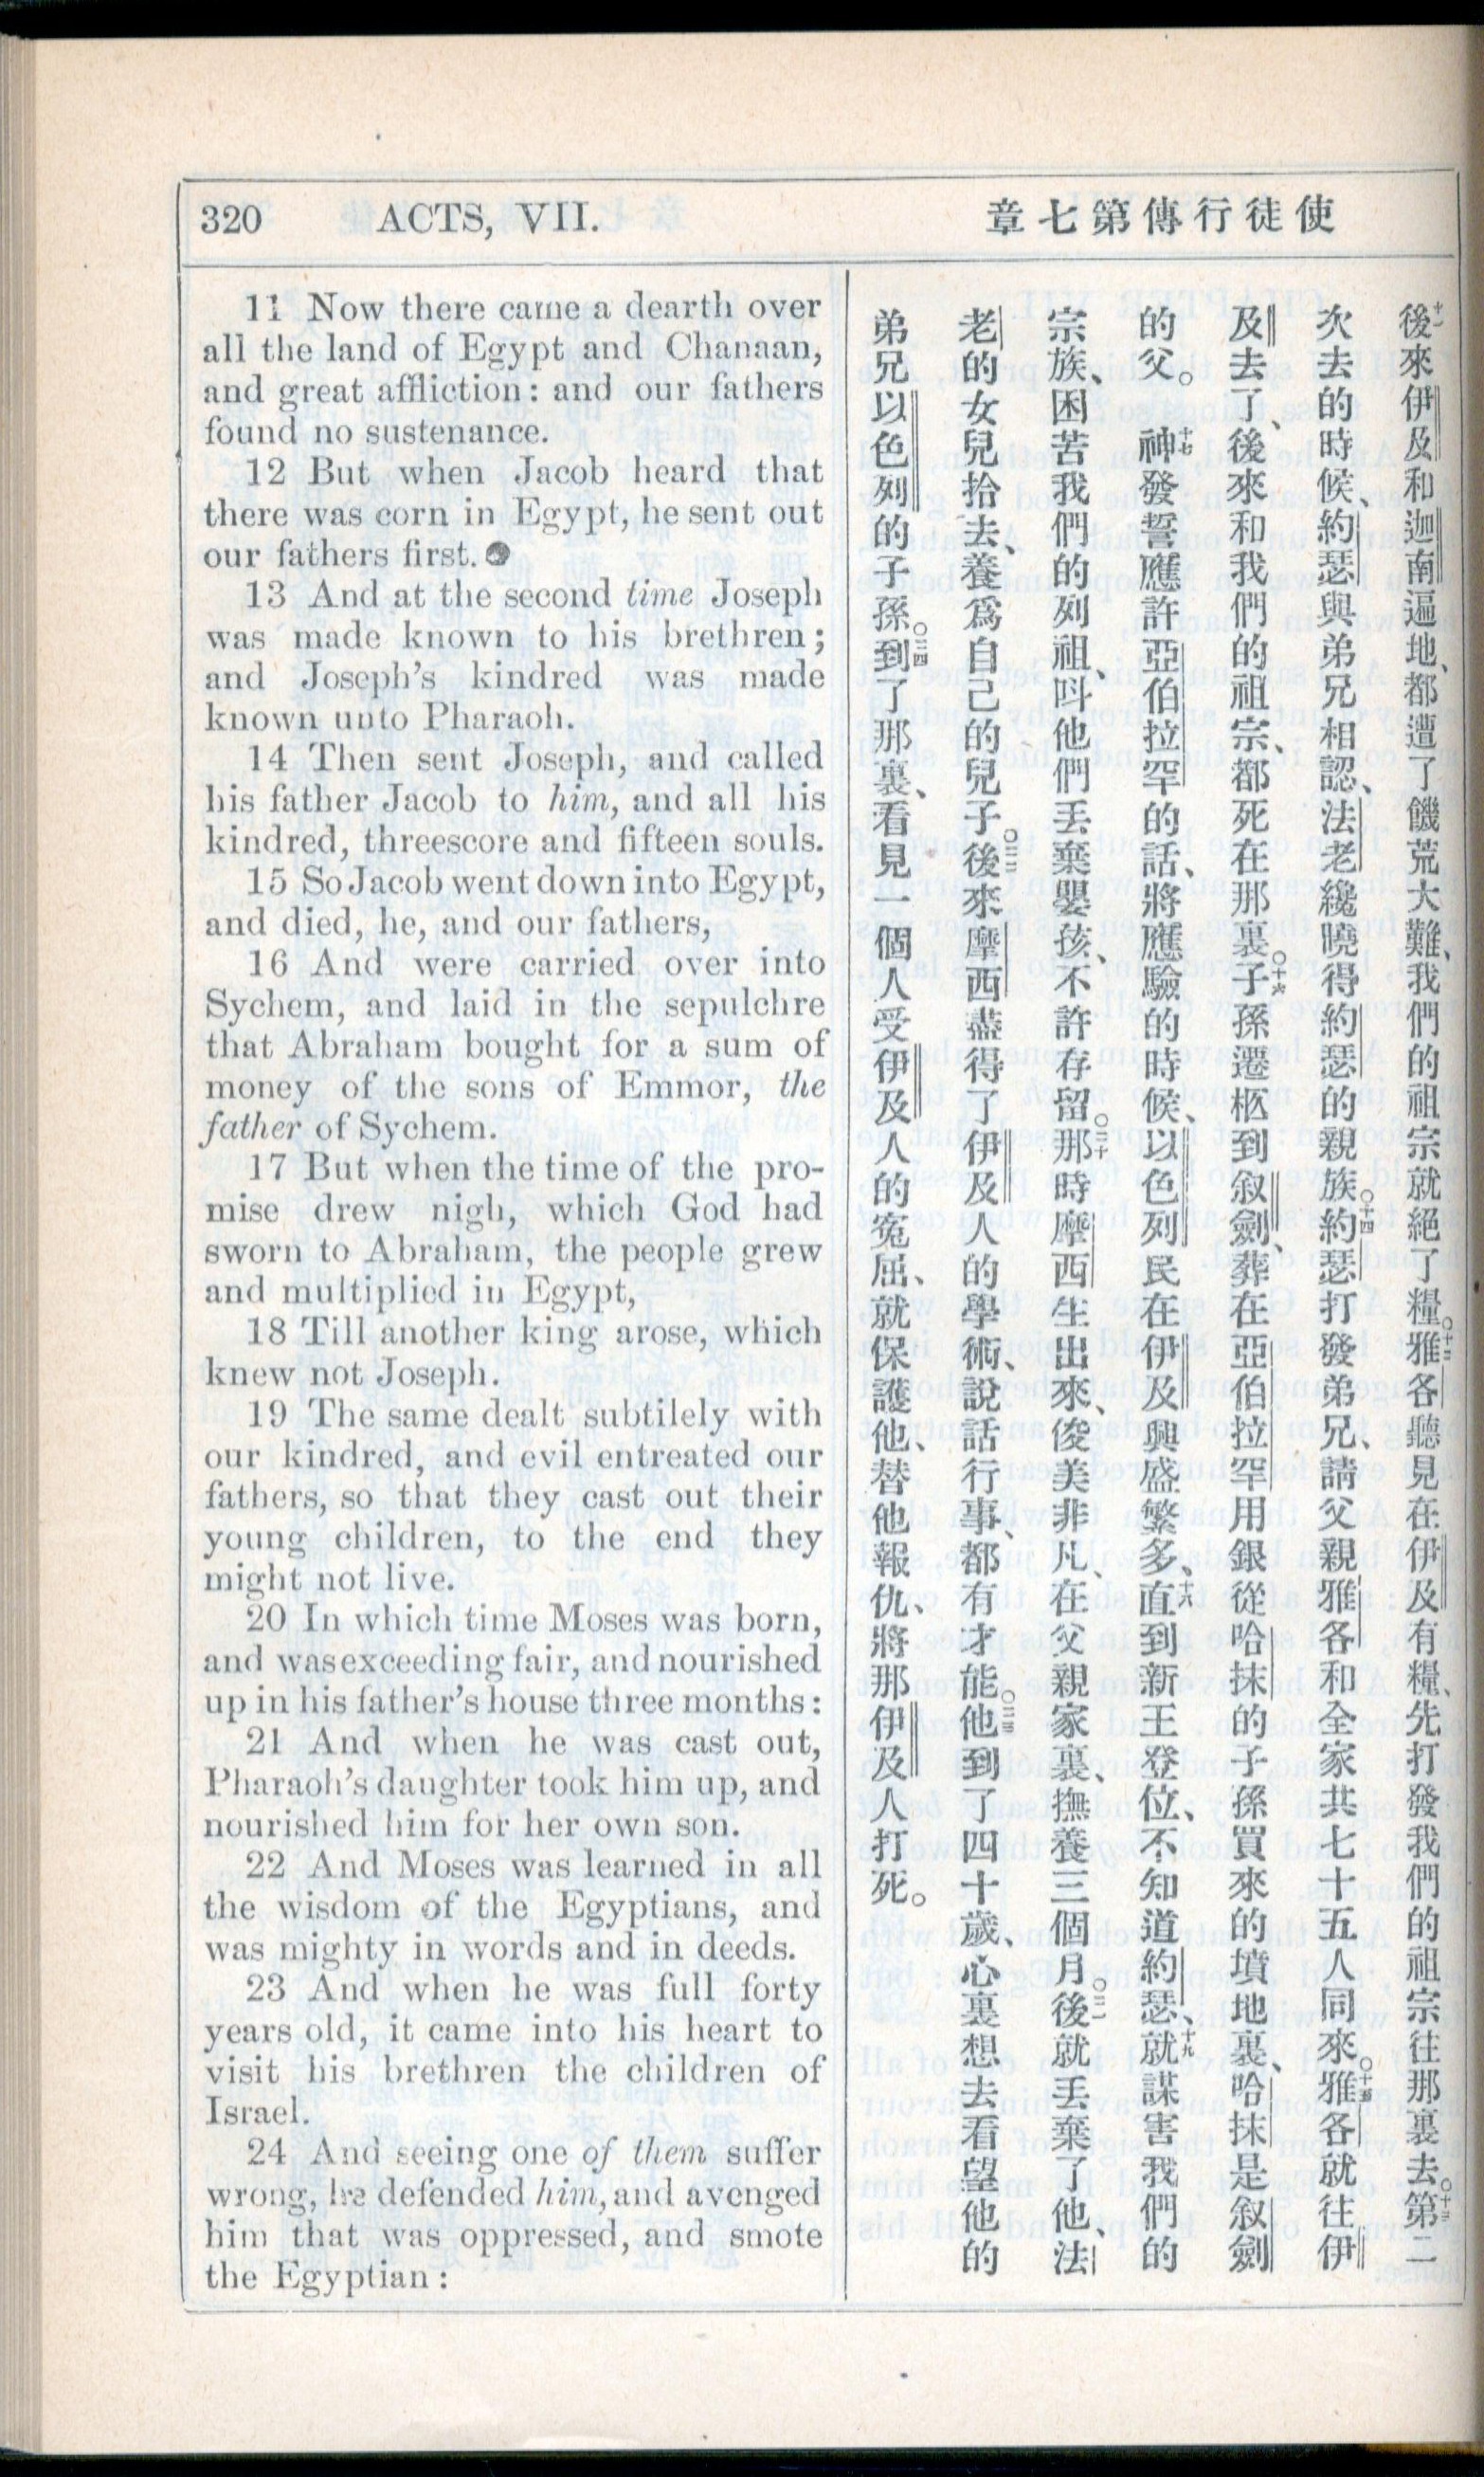 320 ACTS, VII.
使徒行傳第七章
11 Now there came a dearth over
all the land of Egypt and Chanaan,
and great affliction: and our fathers
found no sustenance.
12 But when Jacob heard that
there was corn in Egypt, he sent out
our fathers first.
13 And at the second time Joseph
was made known to his brethren;
and Joseph's kindred was made
known unto Pharaoh.
14 Then sent Joseph, and called
his father Jacob to him, and all his
kindred, threescore and fifteen souls.
15 So Jacob went down into Egypt,
and died, he, and our fathers,
16 And were carried over into
Sychem, and laid in the sepulchre
that Abraham bought for a sum of
money of the sons of Emmor, the
father of Sychem.
17 But when the time of the pro-
mise drew nigh, which God had
sworn to Abraham, the people grew
and multiplied in Egypt,
18 Till another king arose, which
knew not Joseph.
19 The same dealt subtilely with
our kindred, and evil entreated our
fathers, so that they cast out their
young children, to the end they
might not live.
20 In which time Moses was born,
and was exceeding fair, and nourished
up in his father's house three months:
21 And when he was cast out,
Pharaoh's daughter took him up, and
nourished him for her own son.
22 And Moses was learned in all
the wisdom of the Egyptians, and
was mighty in words and in deeds.
23 And when he was full forty
years old, it came into his heart to
visit his brethren the children of
Israel.
24 And seeing one of them suffer
wrong, he defended him, and avenged
him that was oppressed, and smote
the Egyptian:
十一後來伊及和迦南遍地、都遭了饑荒大難、我們的祖宗就絕了糧。十二雅各聽見在伊及有糧、先打發我們的祖宗往那裏去。十三第二
次去的時候、約瑟與弟兄相認、法老纔曉得約瑟的親族。十四約瑟打發弟兄、請父親雅各和全家共七十五人同來。十五雅各就往伊
及去了、後來和我們的祖宗、都死在那裏。十六子孫遷柩到叙劍、葬在亞伯拉罕用銀從哈抹的子孫買來的墳地裏、哈抹是叙劍
的父。十七神發誓應許亞伯拉罕的話、將應驗的時候、以色列民在伊及興盛繁多、十八直到新王登位、不知道約瑟、十九就謀害我們的
宗族、困苦我們的列祖、呌他們丟棄嬰孩、不許存留。二十那時摩西生出來、俊美非凡、在父親家裏、撫養三個月。二一後就丟棄了他、法
老的女兒拾去、養爲自己的兒子。二二後來摩西盡得了伊及人的學術、說話行事、都有才能。二三他到了四十歲、心裏想去看望他的
弟兄以色列的子孫。二四到了那裏、看見一個人受伊及人的寃屈、就保護他、替他報仇、將那伊及人打死。